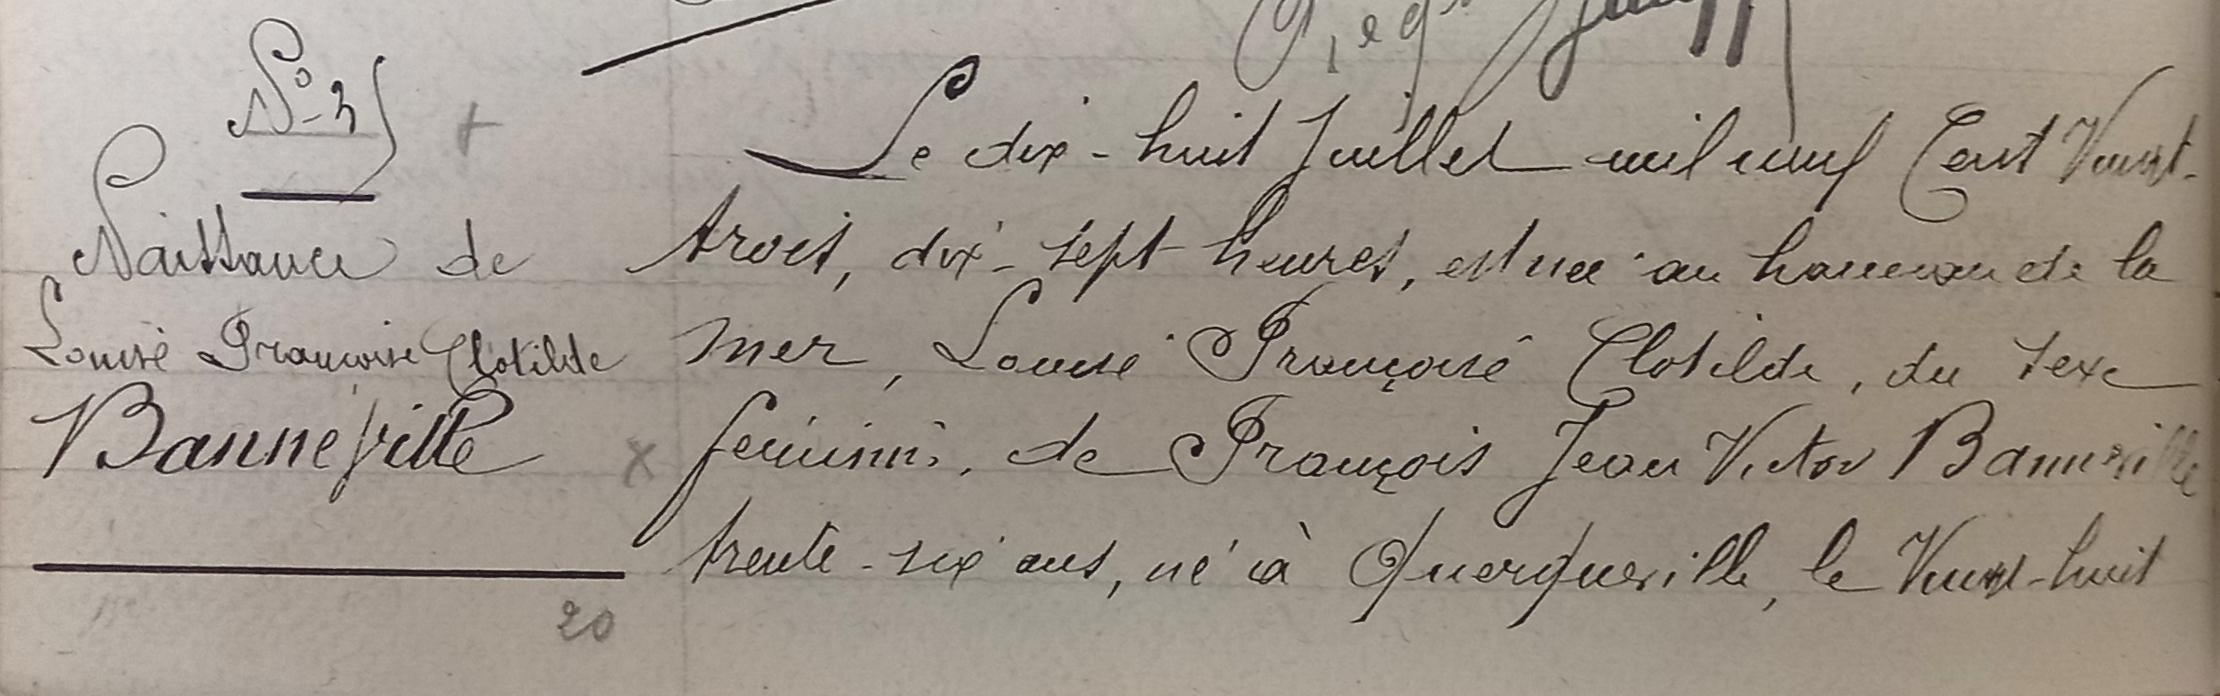 N° 25
Naissance de
Louise Françoise Clotilde
Banneville
20
Le dix-huit Juillet mil neuf Cent Vingt-
trois, dix-sept heures, est née au hameau de la
mer, Louise Françoise Clotilde, du sexe
féminin, de François Jean Victor Banneville
trente-six ans, né à Querqueville, le Vingt-huit